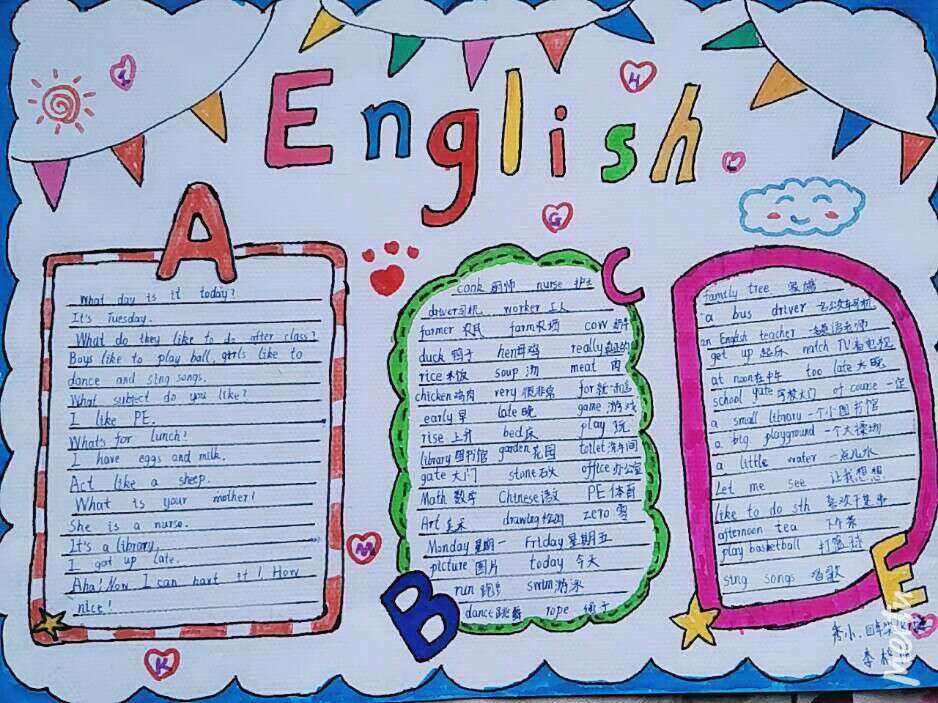 English
A
What day is it today?
It's Tuesday.
What do they like to do after class?
Boys like to play ball, girls like to
dance and sing songs.
What subject do you like?
I like PE.
What's for lunch?
I have eggs and milk.
Act like a sheep.
What is your mother?
She is a nurse.
It's a library
I got up late.
Aha! Now I can hart it! How
nice!
B
C
cook 厨师 nurse 护士
driver 司机 worker 工人
farmer 农民 farm 农场 cow 奶牛
duck 鸭子 hen 母鸡 really
rice 米饭 soup 汤 meat 肉
chicken 鸡肉 very 很非常 for
early 早 late 晚 game 游戏
rise 上升 bed 床 play 玩
library 图书馆 garden 花园 toilet 洗手间
gate 大门 stone 石头 office 办公室
Math 数学 Chinese 语文 PE 体育
Art 美术 drawing zero 零
Monday 星期一 Friday 星期五
picture 图片 today 今天
run 跑步 swim 游泳
dance 跳舞 rope 绳子
family tree 家谱
a bus driver 一名公交车司机
an English teacher 一名英语老师
get up 起床 watch TV 看电视
at noon 在中午 too late 太晚
school gate 学校大门 of course 一定
a small library 一个小图书馆
a big playground 一个大操场
a little water 一点儿水
Let me see 让我想想
like to do sth 喜欢干某事
afternoon tea 下午茶
play basketball 打篮球
sing songs 唱歌
E
李
G
H
K
M